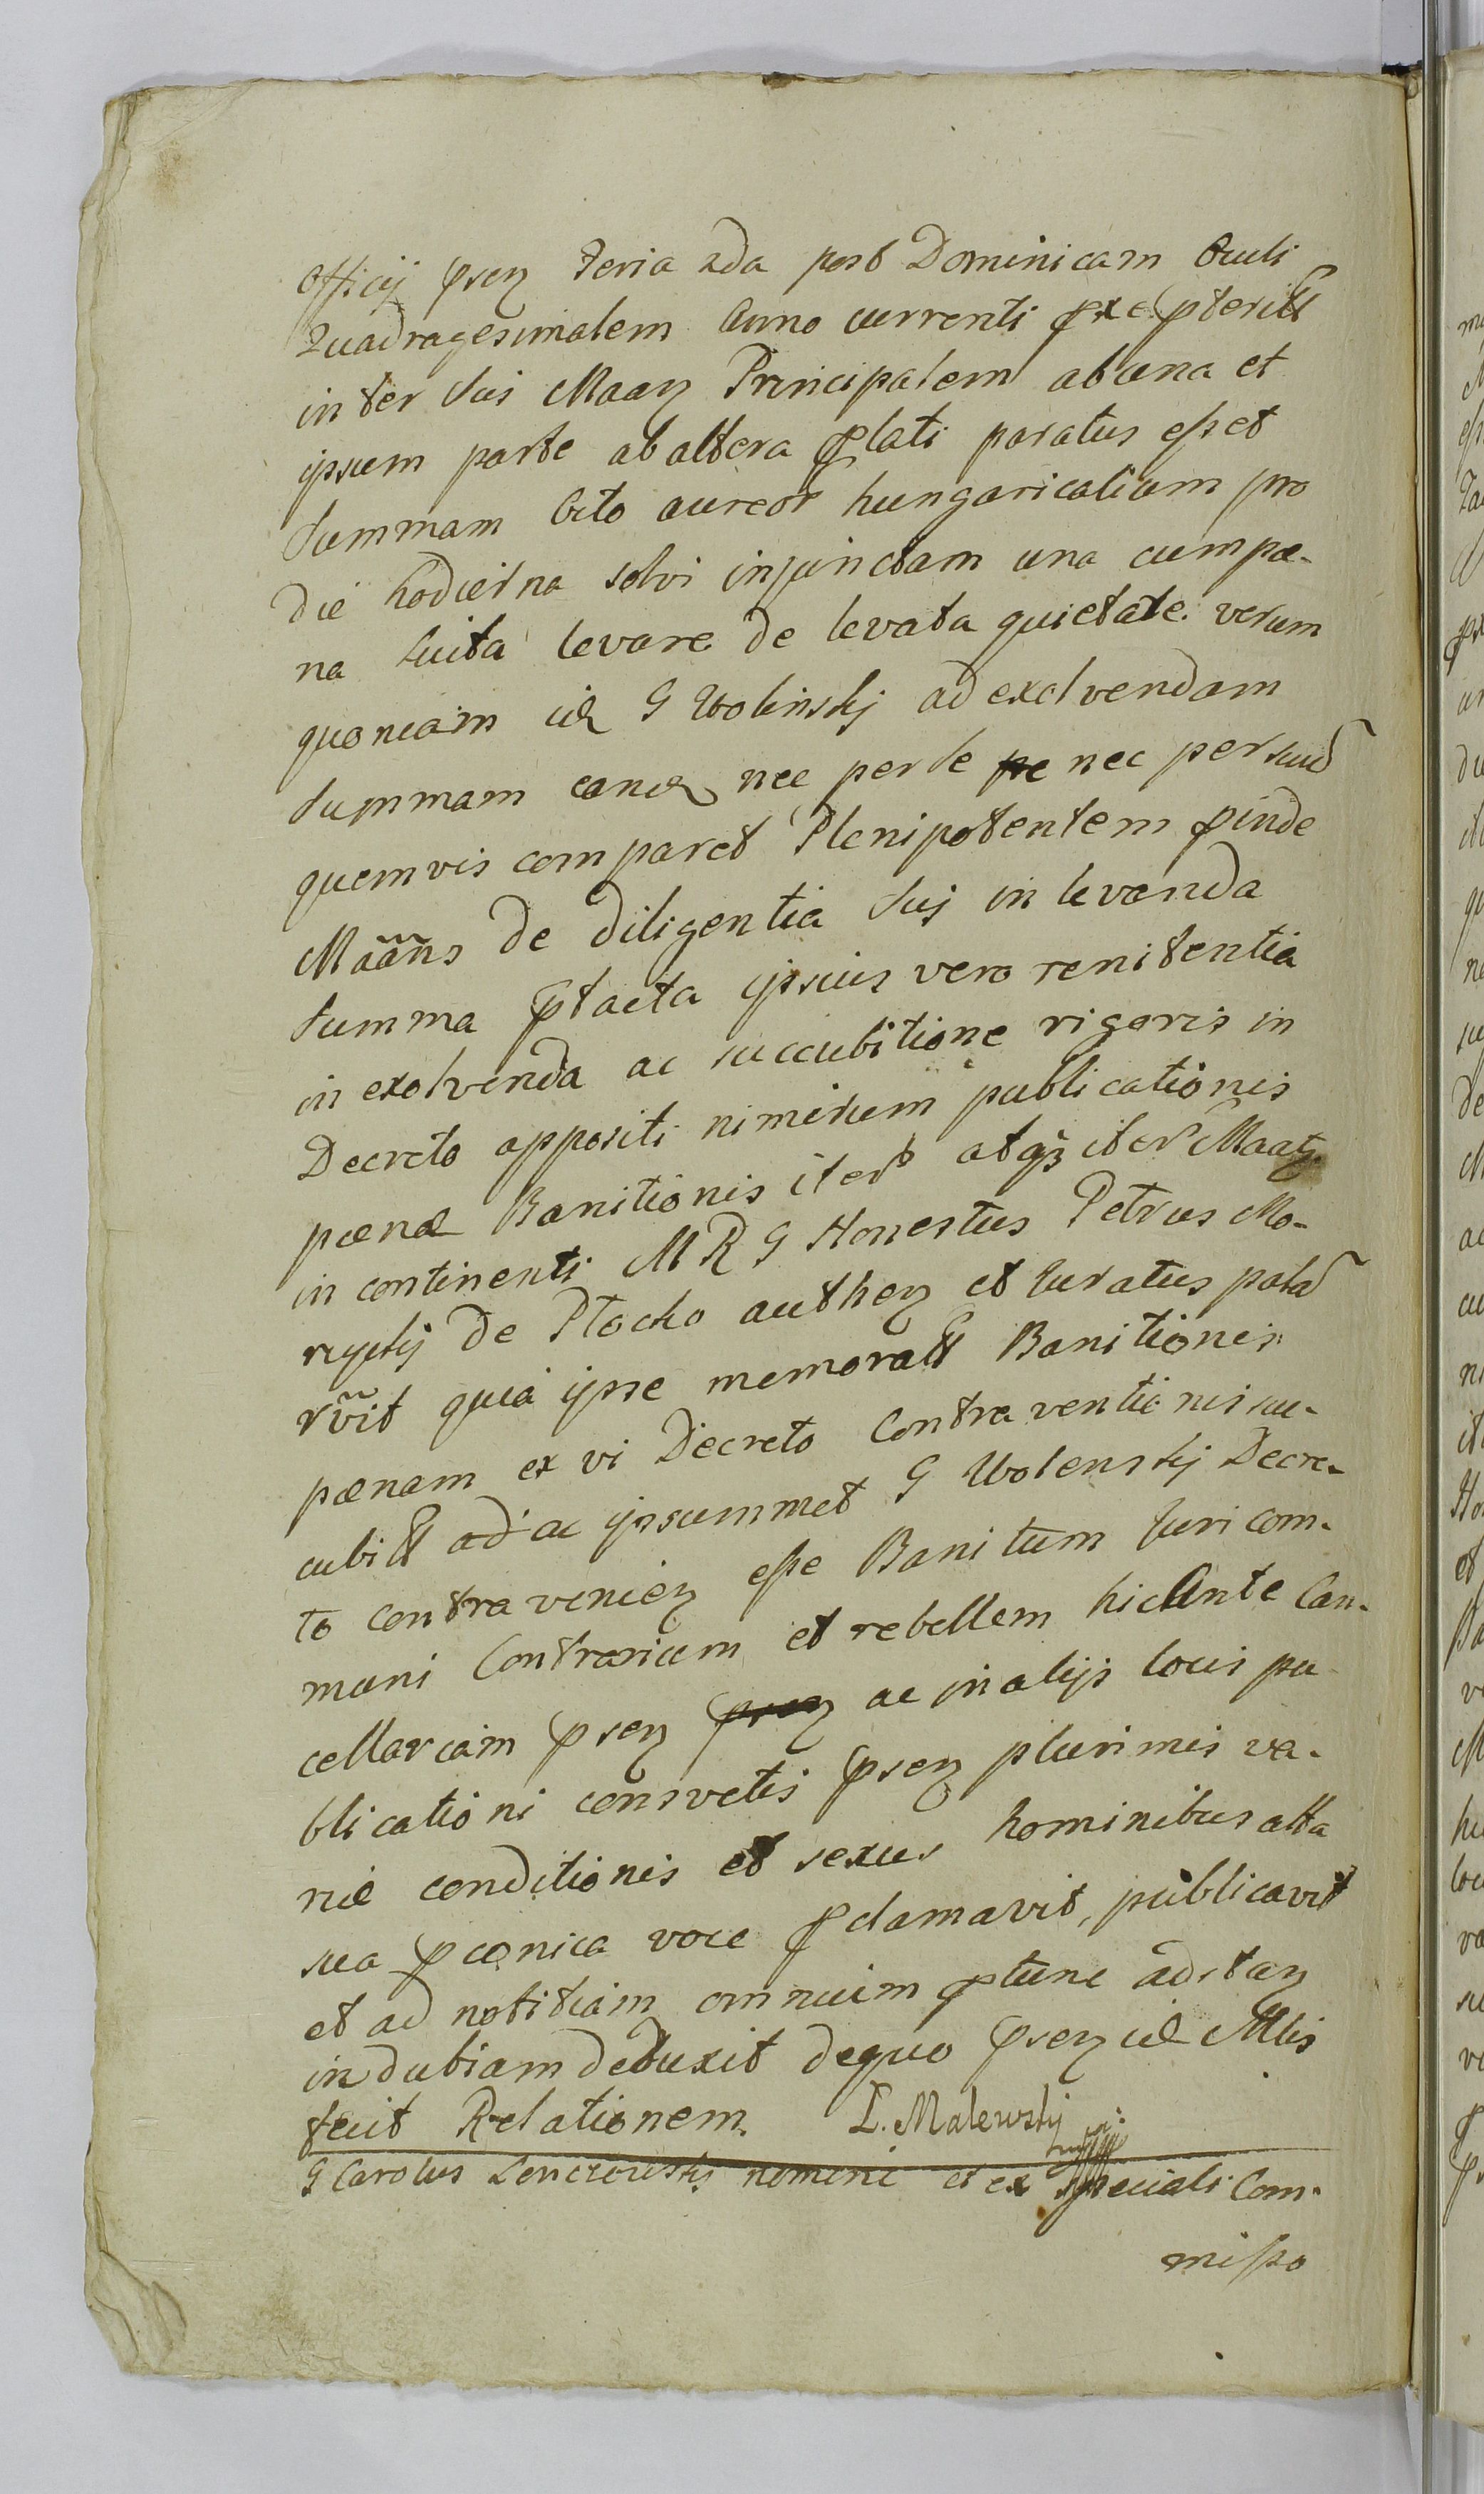 Officij psen Feria 2da post Dominicam Oculi
Quadragesimalem Anno currenti
inter sui Maan Principalem ab una et
ipsum parte ab altera plati paratus esset
Summam Octo aureor hungaricalium pro
die hodierna solvi injunctam una cum pæ-
na luita levare de levata quietare. verum
quoniam id G Wolinskj ad exolvendam
Summam eand nec per se ne nec per suū
quemvis comparet Plenipotentem pinde
Maāns de diligentia sui in levanda
Summa ptacta ipsius vero renitentia
in exolvenda ac succubitione rigoris in
Decreto appositi nimirum publicationis
pænæ Banitionis iter atqz iter Maan
in continenti M R G Honestus Petrus Mo-
rytkj de Plocko authen et Juratus palā
rvit quia ipse memorat Banitionis
pœnam ex vi Decreto Contraventionis suc-
cubit ad ac ipsummet G Wolenskj Decre-
to contravenien esse Banitum Juri com-
muni Contrarium et rebellem hic Ante Can-
cellariam psen psen ac in alijs locis pu-
blicationi consvetis psen plurimis va-
riæ conditionis et sexus hominibus alta
sua pconica voce pclamavit, publicavit
et ad notitiam omnium ptunc adstan
indubiam deduxit de quo psen id Mlis
fecit Relationem. L. Malewskj
G Carolus Lenczowskj nomine et ex speciali Com-
misso